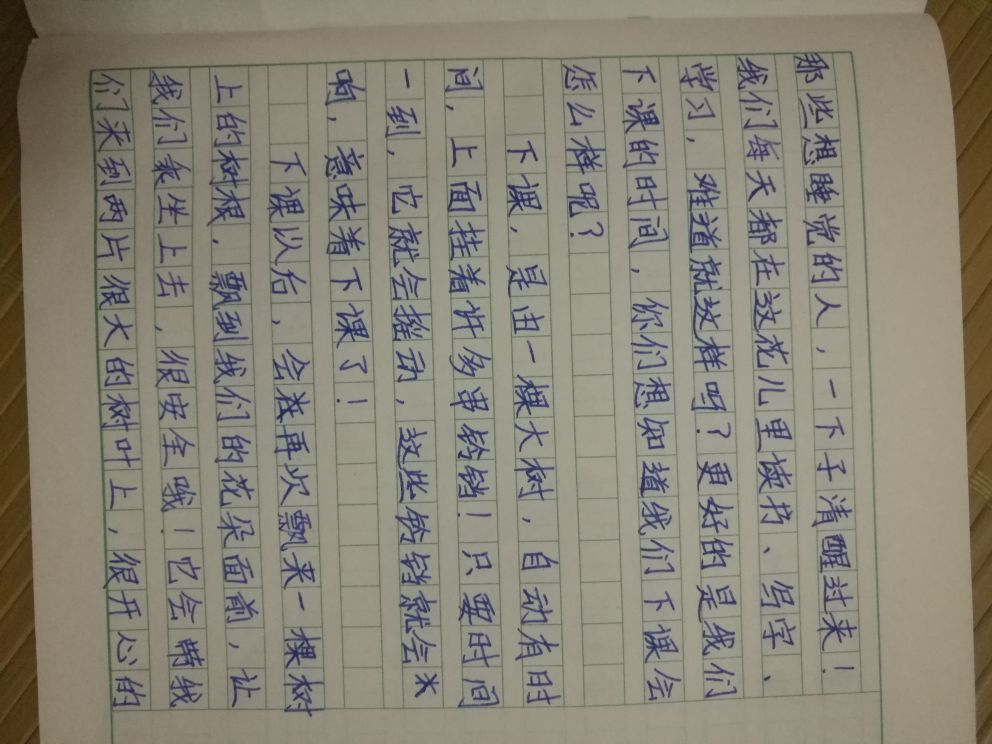 那些想睡觉的人，一下子清醒过来！
我们每天都在这花儿里读书、写字、
学习，难道就这样吗？更好的是我们
下课的时间，你们想知道我们下课会
怎么样呢？
下课，是由一棵大树，自动有时
间，上面挂着许多串铃铛！只要时间
一到，它就会摇动，这些铃铛就会
响，意味着下课了！
下课以后，会再次飘来一棵树
上的树根，飘到我们的花朵面前，让
我们乘坐上去，很安全哦！它会带我
们来到两片很大的树叶上，很开心的